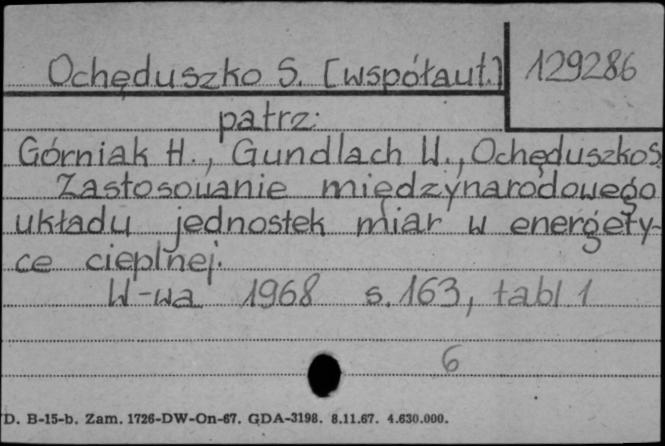 Ochęduszko S. [współaut.] 129286
patrz:
Górniak H., Gundlach W., Ochęduszko S.
Zastosowanie międzynarodowego
układu jednostek miar w energety-
ce cieplnej.
W-wa 1968 s. 163, tabl 1
6
D. B-15-b. Zam. 1726-DW-On-67. GDA-3198. 8.11.67. 4.630.000.